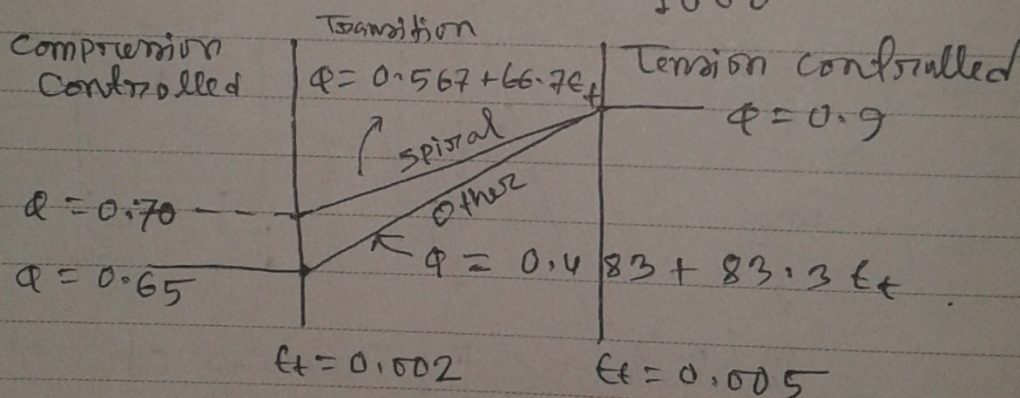 Compression
Controlled
Transition
φ = 0.567 + 66.7 Єt
Tension controlled
φ = 0.9
spiral
φ = 0.70
other
φ = 0.65
φ = 0.483 + 83.3 Єt
Єt = 0.002
Єt = 0.005